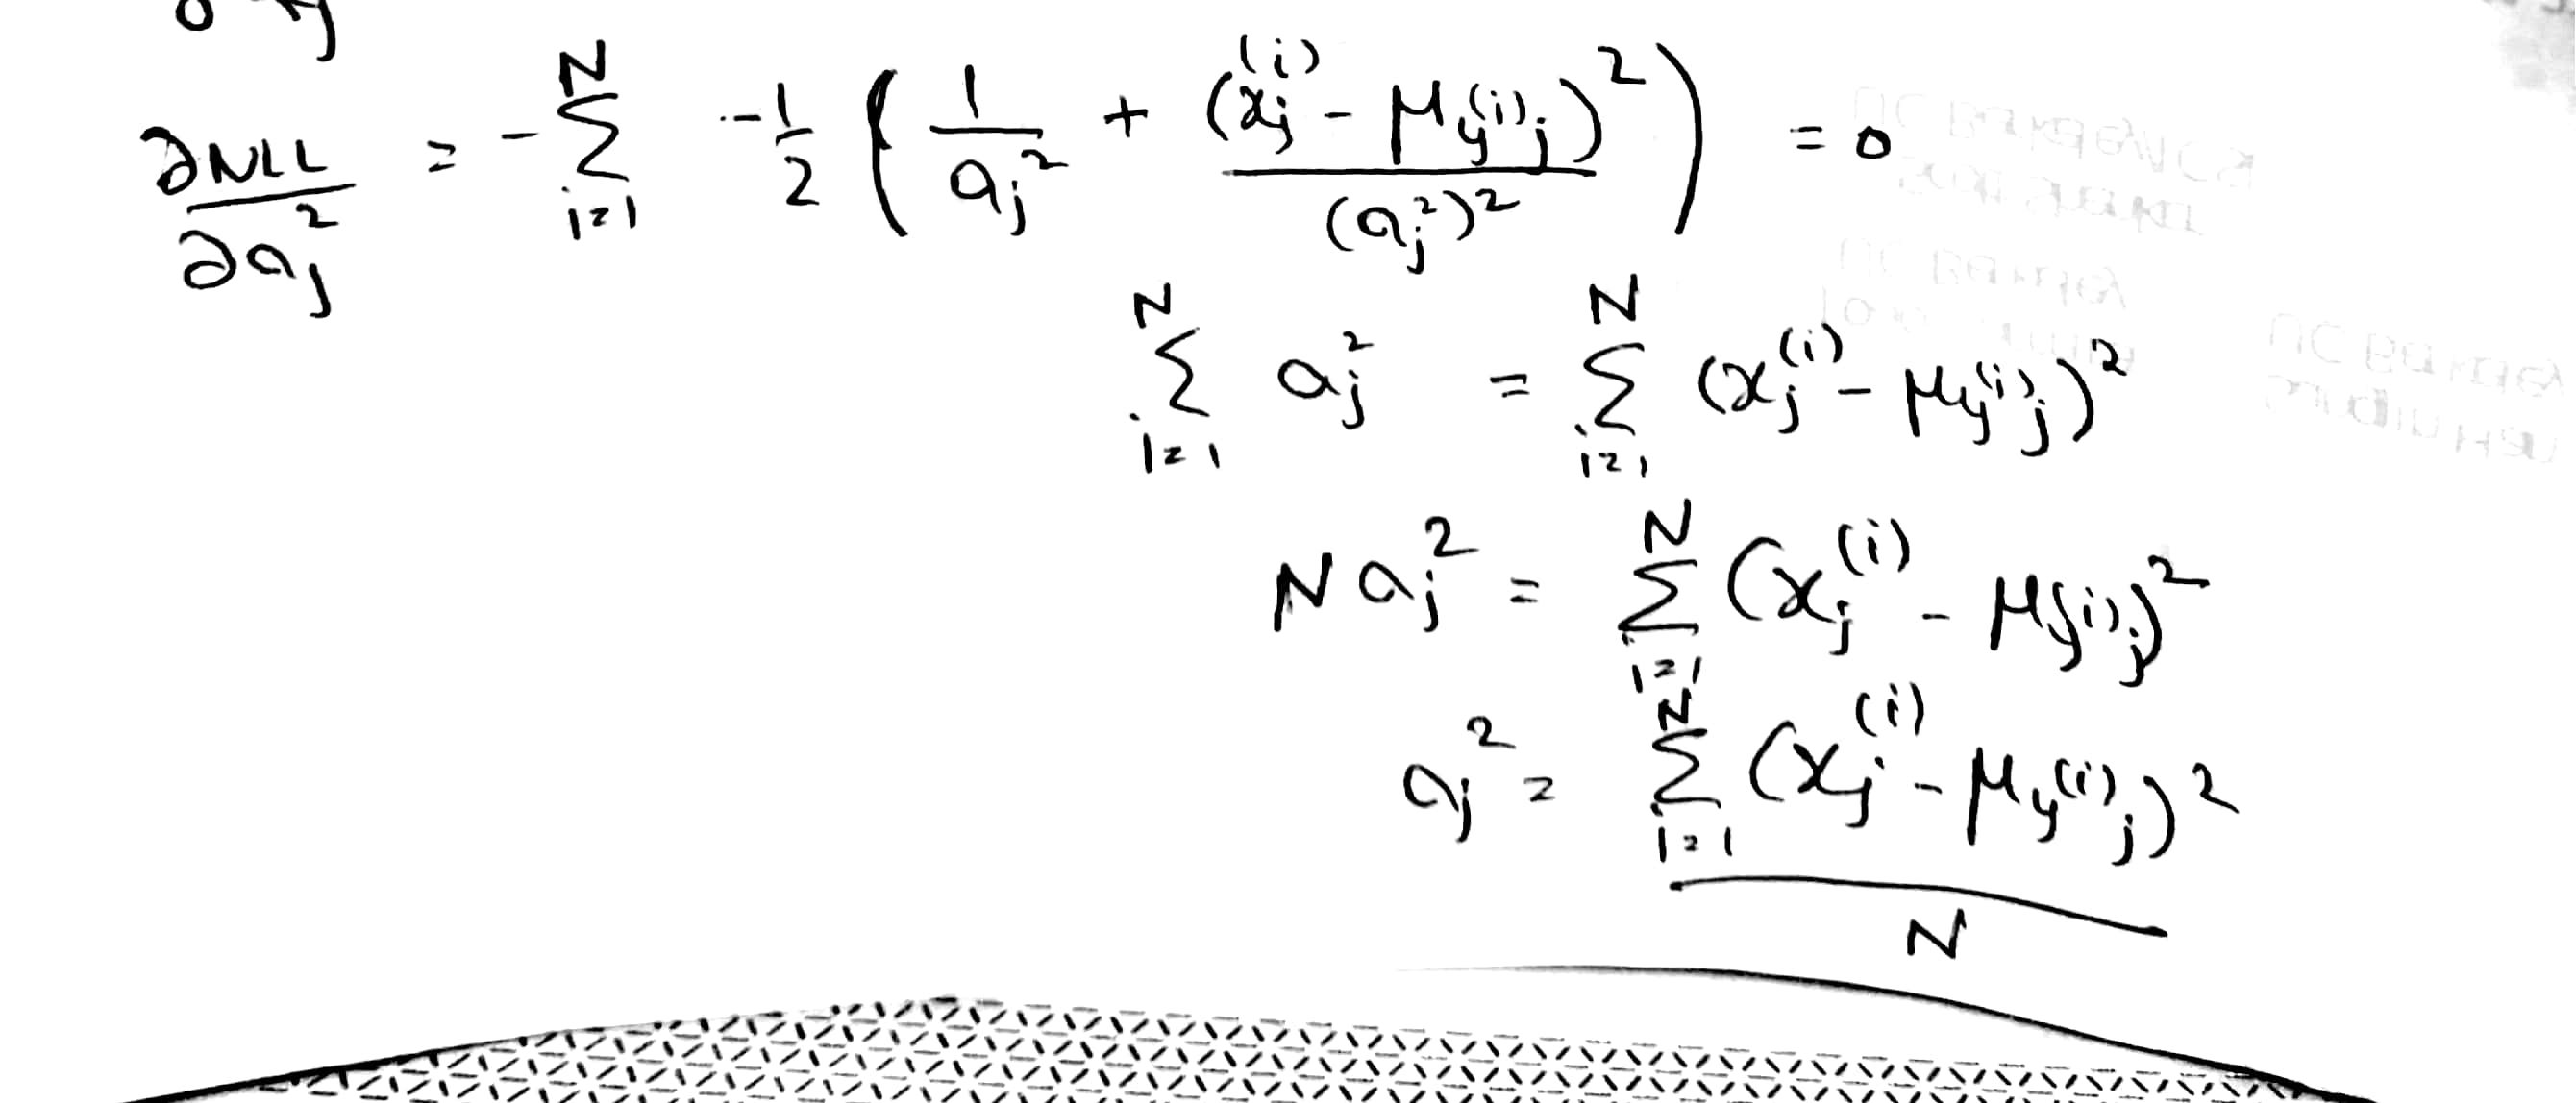 ∂NLL/∂a_j^2 = - Σ_{i=1}^{N} -1/2 ( 1/a_j^2 + (x_j^{(i)} - μ_{y^{(i)}j})^2/(a_j^2)^2 ) = 0
Σ_{i=1}^{N} a_j^2 = Σ_{i=1}^{N} (x_j^{(i)} - μ_{y^{(i)}j})^2
N a_j^2 = Σ_{i=1}^{N} (x_j^{(i)} - μ_{y^{(i)}j})^2
a_j^2 = Σ_{i=1}^{N} (x_j^{(i)} - μ_{y^{(i)}j})^2 / N